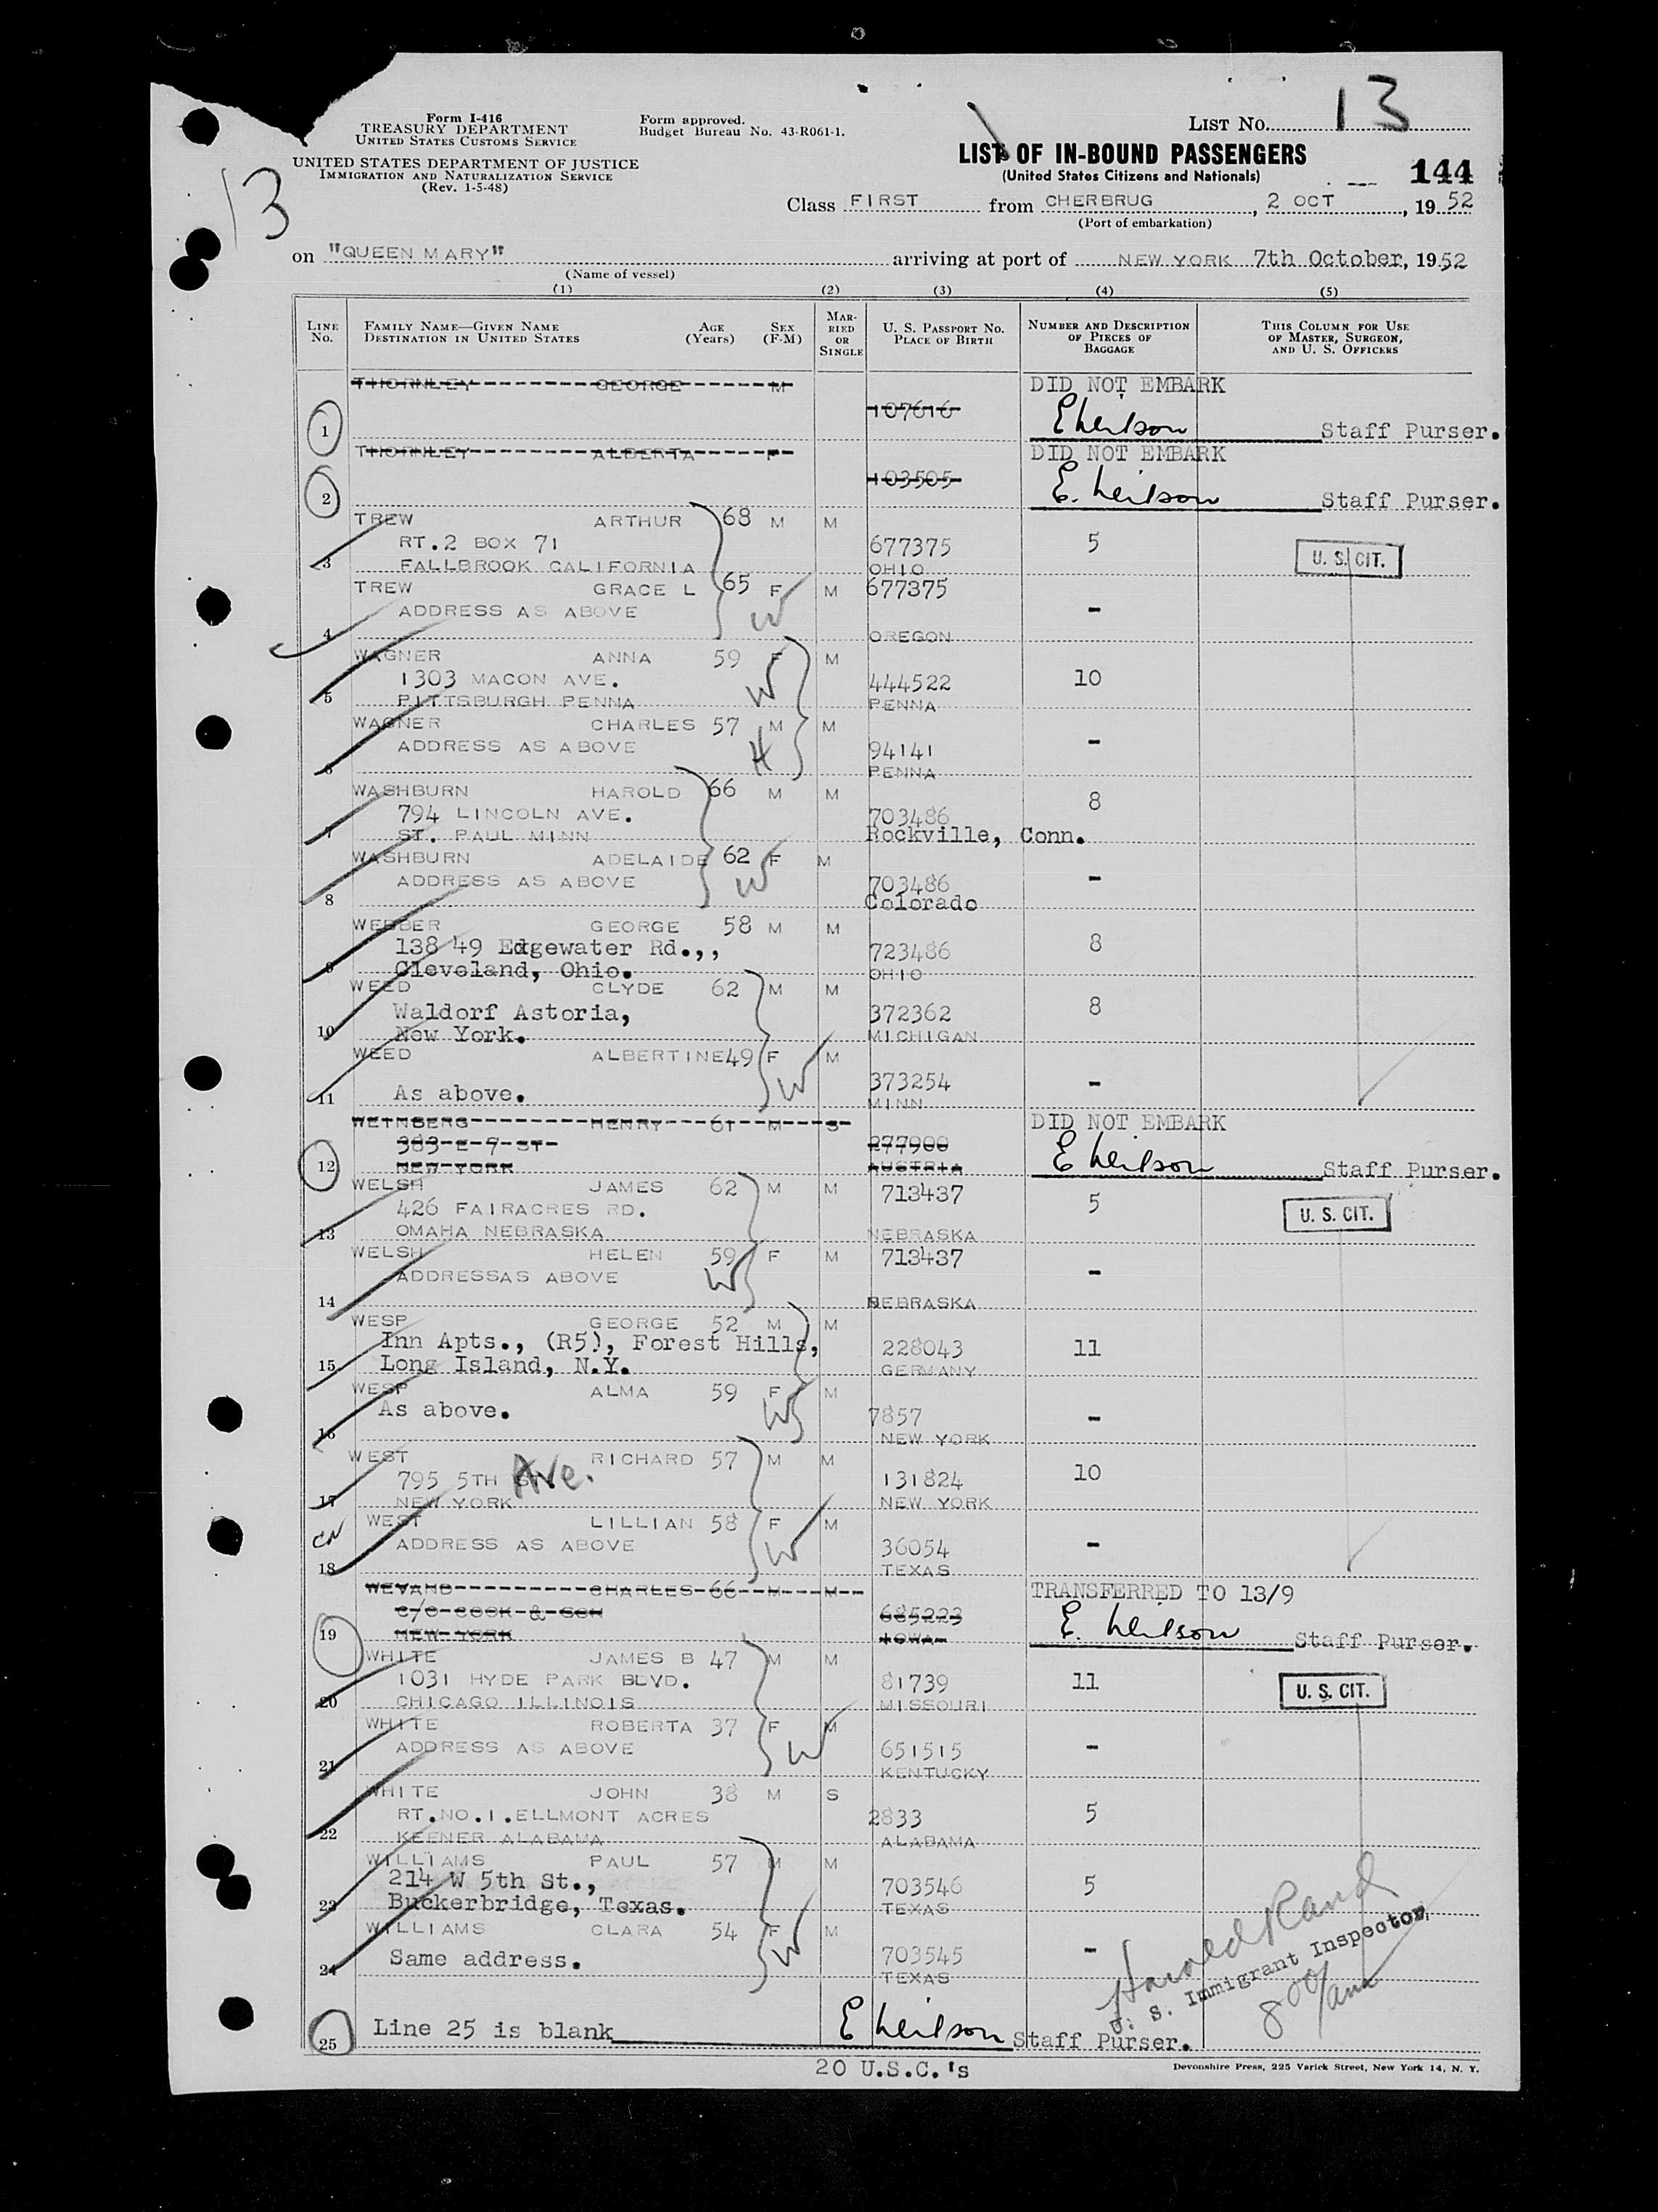 Form I-416
TREASURY DEPARTMENT
UNITED STATES CUSTOMS SERVICE
UNITED STATES DEPARTMENT OF JUSTICE
IMMIGRATION AND NATURALIZATION SERVICE
(Rev. 1-5-48)
Form approved.
Budget Bureau No. 43-R061-1.
LIST No. 13
13
LIST OF IN-BOUND PASSENGERS
(United States Citizens and Nationals)
144
Class FIRST from CHERBRUG, 2 OCT, 1952
(Port of embarkation)
on "QUEEN MARY" arriving at port of NEW YORK 7th October, 1952
(Name of vessel)
(1) (2) (3) (4) (5)
LINE No. FAMILY NAME—GIVEN NAME DESTINATION IN UNITED STATES AGE (Years) SEX (F-M) MARRIED OR SINGLE U. S. PASSPORT No. PLACE OF BIRTH NUMBER AND DESCRIPTION OF PIECES OF BAGGAGE THIS COLUMN FOR USE OF MASTER, SURGEON, AND U. S. OFFICERS
THORNLEY GEORGE M DID NOT EMBARK
107616
1 E Neilson Staff Purser.
THORNLEY ALBERTA F DID NOT EMBARK
103505
2 E. Neilson Staff Purser.
TREW ARTHUR 68 M M
RT.2 BOX 71 677375 5
3 FALLBROOK CALIFORNIA OHIO U. S. CIT.
TREW GRACE L 65 F M 677375
ADDRESS AS ABOVE W -
4 OREGON
WAGNER ANNA 59 F M
1303 MACON AVE. W 444522 10
5 PITTSBURGH PENNA PENNA
WAGNER CHARLES 57 M M
ADDRESS AS ABOVE H 94141 -
6 PENNA
WASHBURN HAROLD 66 M M
794 LINCOLN AVE. 703486 8
7 ST. PAUL MINN Rockville, Conn.
WASHBURN ADELAIDE 62 F M
ADDRESS AS ABOVE W 703486 -
8 Colorado
WEBBER GEORGE 58 M M
138 49 Edgewater Rd.,, 723486 8
9 Cleveland, Ohio. OHIO
WEED CLYDE 62 M M
Waldorf Astoria, 372362 8
10 New York. MICHIGAN
WEED ALBERTINE 49 F M
W 373254 -
11 As above. MINN
WEINBERG HENRY 61 M S DID NOT EMBARK
383 E 7 ST 277900
12 NEW YORK AUSTRIA E Neilson Staff Purser.
WELSH JAMES 62 M M 713437
426 FAIRACRES RD. 5 U. S. CIT.
13 OMAHA NEBRASKA NEBRASKA
WELSH HELEN 59 F M 713437
ADDRESSAS ABOVE W -
14 NEBRASKA
WESP GEORGE 52 M M
Inn Apts., (R5), Forest Hills, 228043 11
15 Long Island, N.Y. GERMANY
WESP ALMA 59 F M
As above. W 7857 -
16 NEW YORK
WEST RICHARD 57 M M
795 5TH Ave. 131824 10
17 NEW YORK NEW YORK
WEST LILLIAN 58 F M
ADDRESS AS ABOVE W 36054 -
18 TEXAS
WEYAND CHARLES 66 M M TRANSFERRED TO 13/9
C/O COOK & SON 685223
19 NEW YORK IOWA E. Neilson Staff Purser.
WHITE JAMES B 47 M M
1031 HYDE PARK BLVD. 81739 11 U. S. CIT.
20 CHICAGO ILLINOIS MISSOURI
WHITE ROBERTA 37 F M
ADDRESS AS ABOVE W 651515 -
21 KENTUCKY
WHITE JOHN 38 M S
RT.NO.1.ELLMONT ACRES 2833 5
22 KEENER ALABAMA ALABAMA
WILLIAMS PAUL 57 M M
214 W 5th St., 703546 5
23 Buckerbridge, Texas. TEXAS
WILLIAMS CLARA 54 F M
Same address. W 703545 -
24 TEXAS
Harold Rand
U. S. Immigrant Inspector,
800/am
25 Line 25 is blank E Neilson Staff Purser.
20 U.S.C.'s
Devonshire Press, 225 Varick Street, New York 14, N. Y.